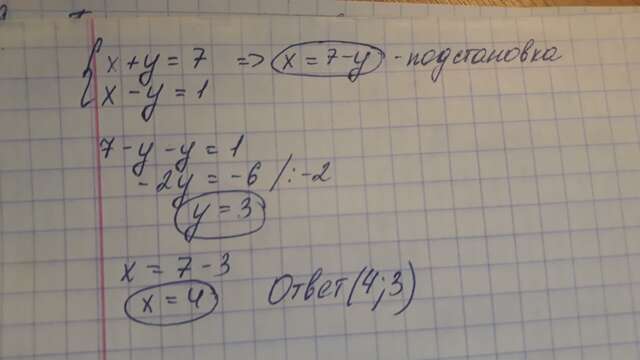 x + y = 7 => x = 7-y - подстановка
x - y = 1
7 - y - y = 1
-2y = -6 /:-2
y = 3
x = 7 - 3
x = 4 Ответ(4;3)